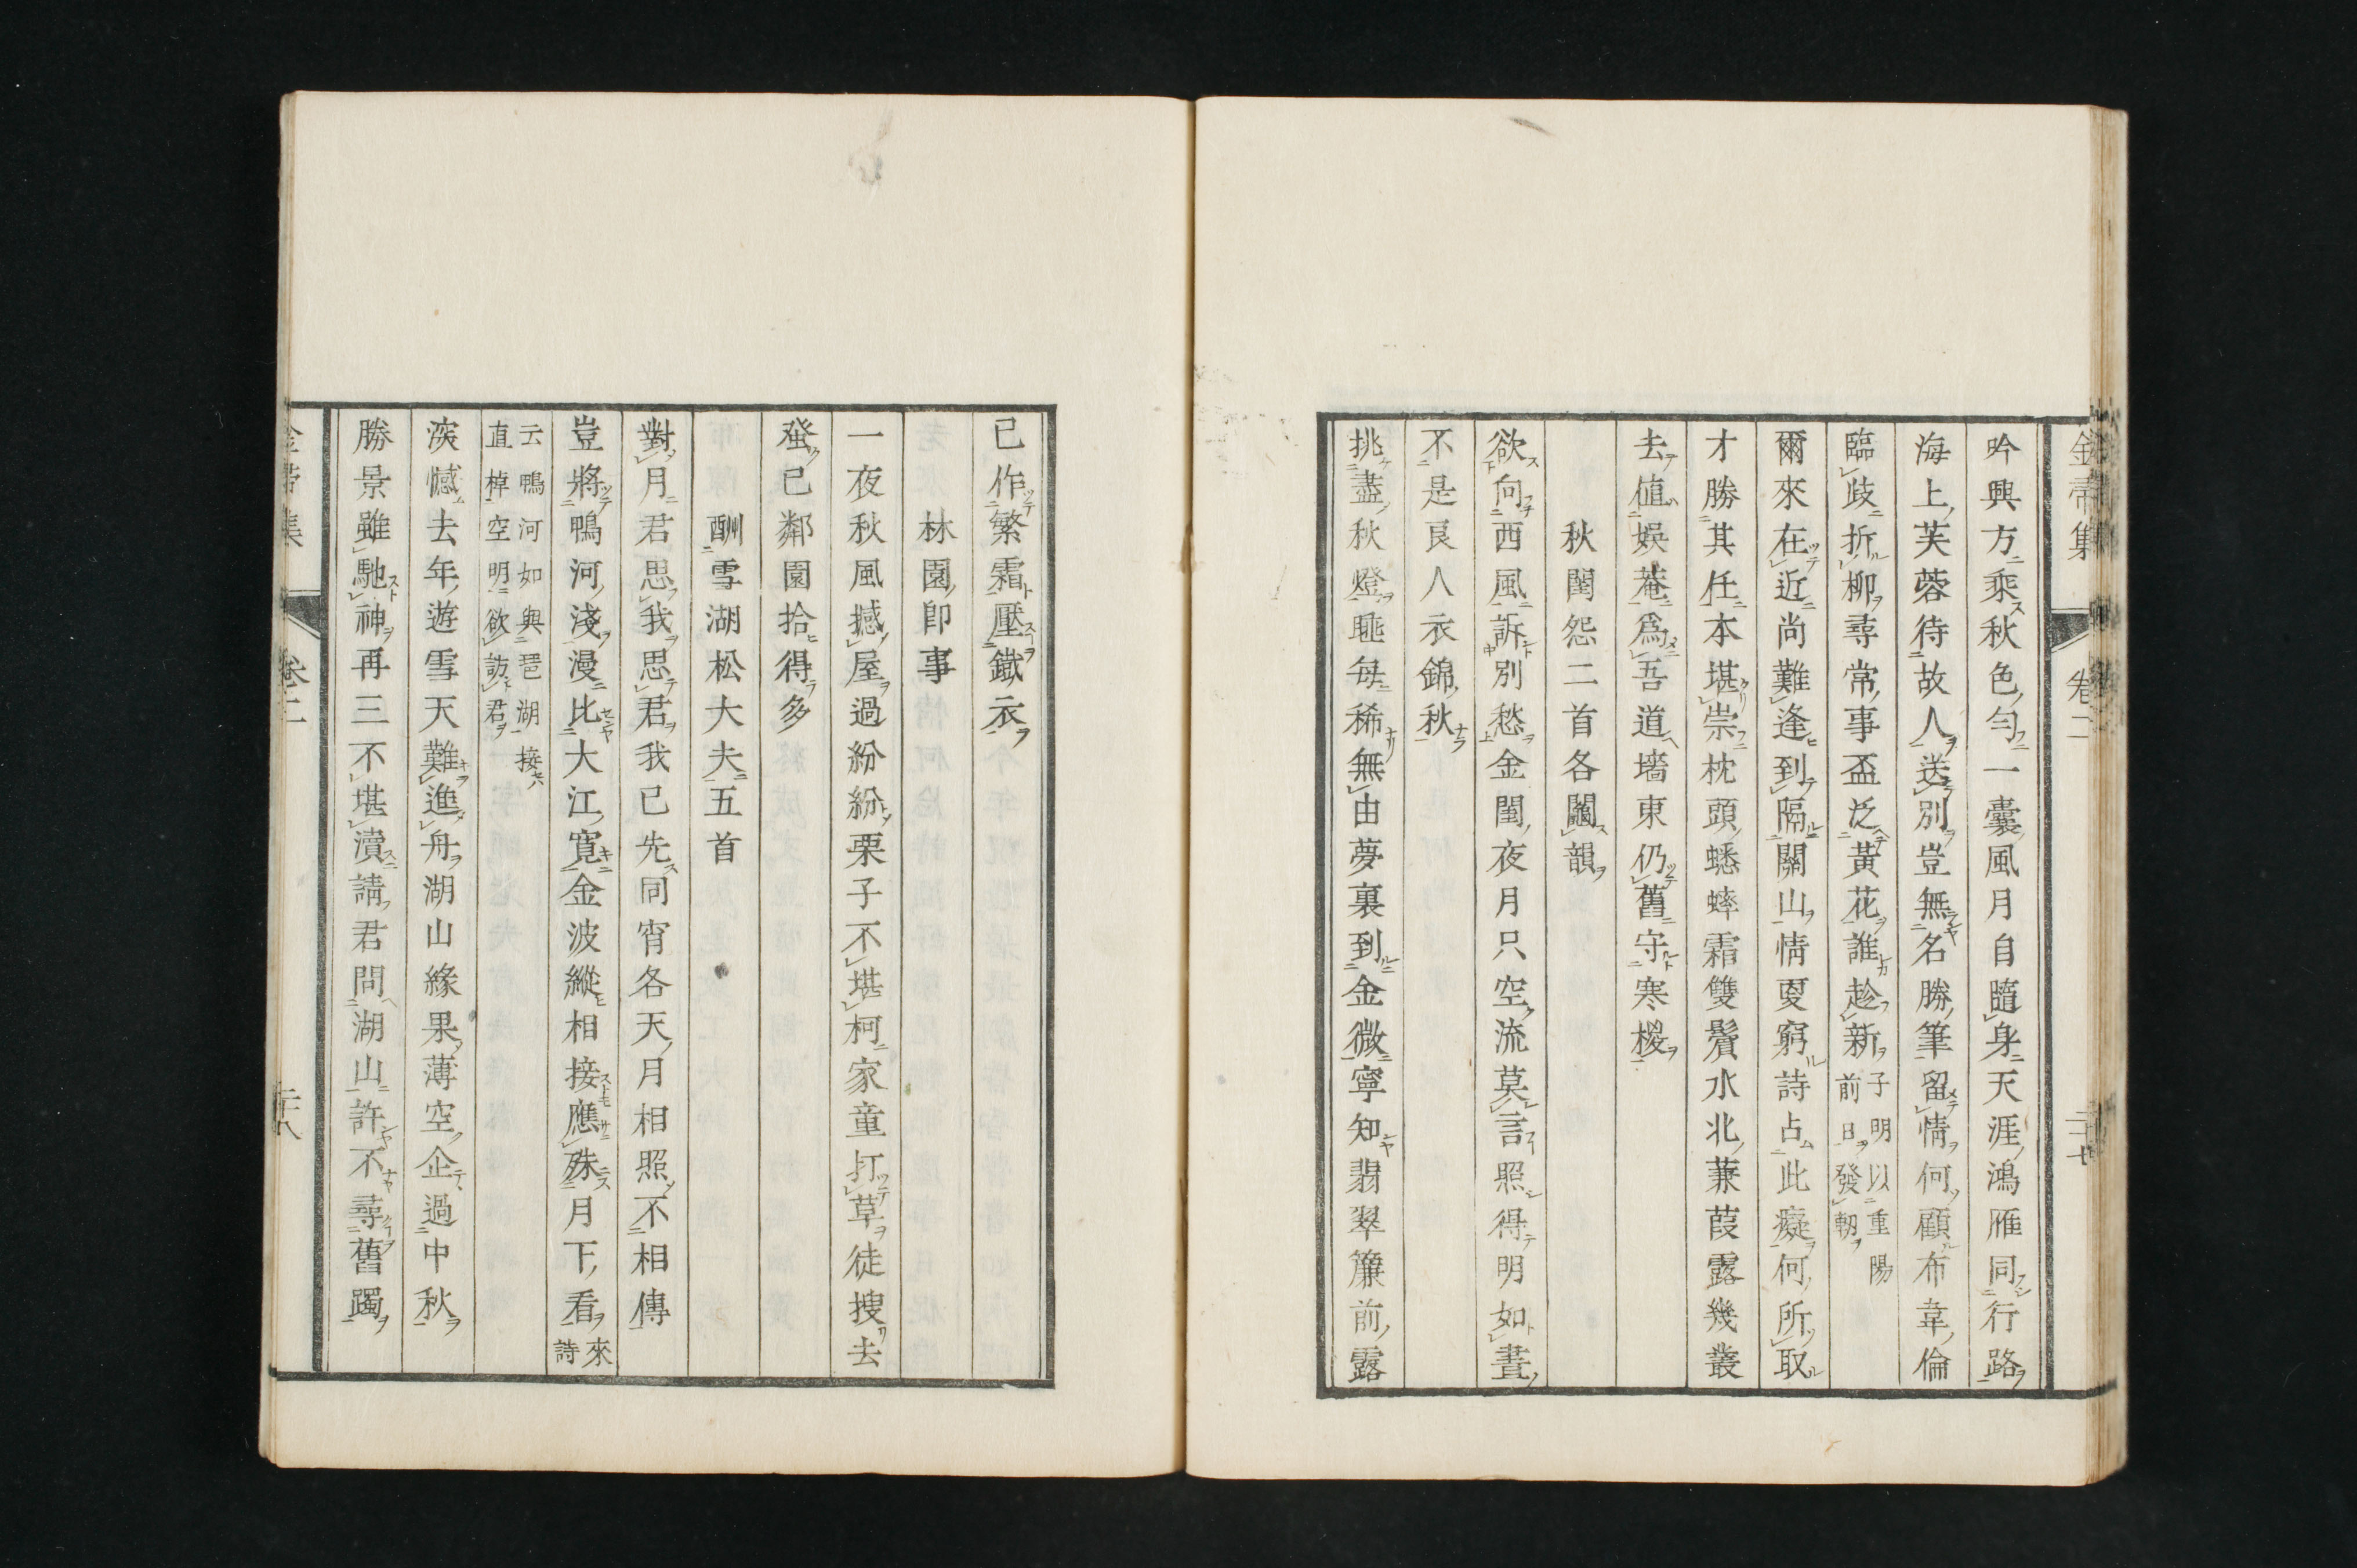 金帚集 卷二 二十七
吟興方乘秋色勻一囊風月自隨身天涯鴻雁同行路
海上芙蓉待故人送別豈無名勝筆留情何顧布韋倫
臨歧折柳尋常事盃泛黃花誰趁新子明以重陽前日發軔
爾來在近尚難逢到隔關山情更窮詩占此癡何所取
才勝其任本堪崇枕頭蟋蟀霜雙鬢水北蒹葭露幾叢
去値娯菴爲吾道墻東仍舊守寒椶
秋閨怨二首各韻
欲向西風訴別愁金閨夜月只空流莫言照得明如晝
不是良人衣錦秋
挑盡秋燈睡每稀無由夢裏到金微寧知翡翠簾前露
已作繁霜壓鐵衣
林園卽事
一夜秋風撼屋過紛紛栗子不堪柯家童打草徒搜去
蛩已鄰園拾得多
酬雪湖松大夫五首
對月君思我思君我已先同宵各天月相照不相傳
豈將鴨河淺漫比大江寬金波縱相接應殊月下看來詩
云鴨河如與琶湖接直棹空明欲訪君
深憾去年遊雪天難進舟湖山緣果薄空企過中秋
勝景雖馳神再三不堪瀆請君問湖山許不尋舊躅
集 卷二 二十八